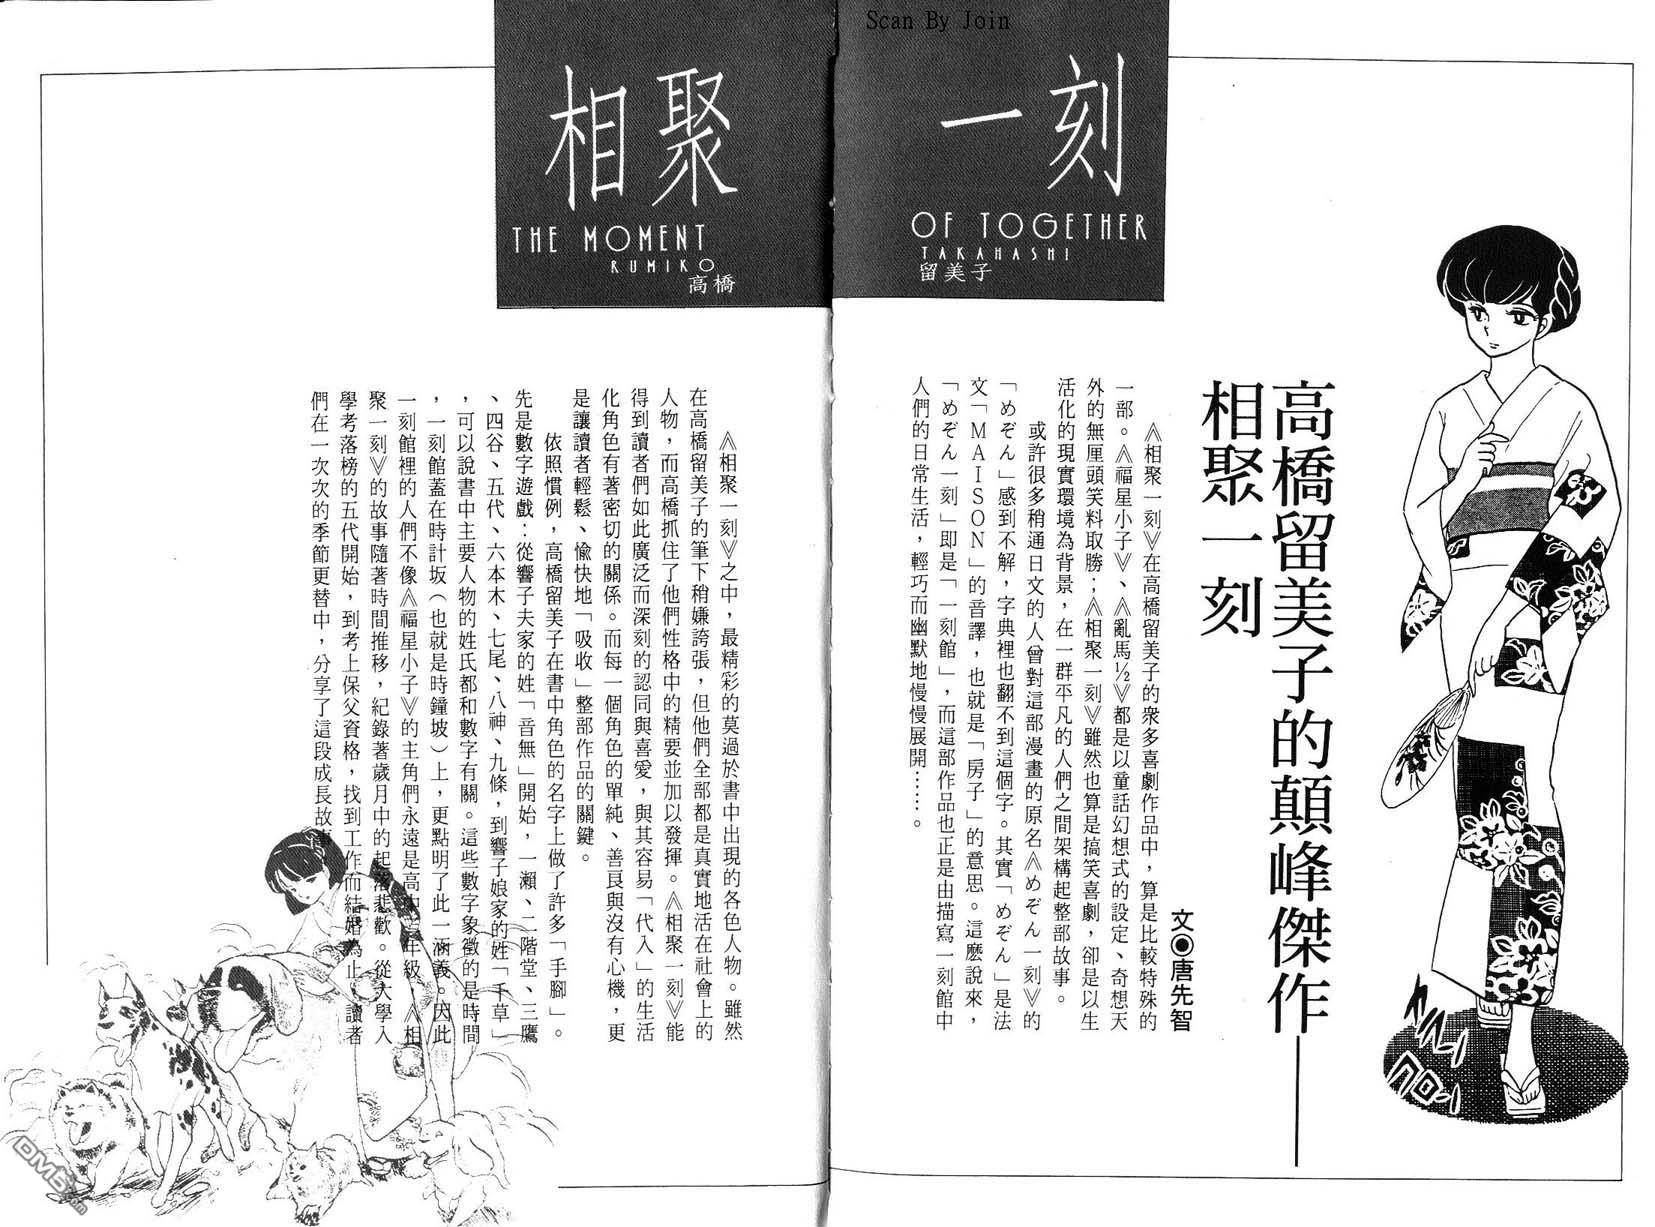 Scan By Join
相聚一刻
THE MOMENT OF TOGETHER
RUMIKO TAKAHASHI
高橋留美子
高橋留美子的顛峰傑作——
相聚一刻
文◉唐先智
《相聚一刻》在高橋留美子的眾多喜劇作品中，算是比較特殊的
一部。《福星小子》、《亂馬½》都是以童話幻想式的設定、奇想天
外的無厘頭笑料取勝；《相聚一刻》雖然也算是搞笑喜劇，卻是以生
活化的現實環境為背景，在一群平凡的人們之間架構起整部故事。
或許很多稍通日文的人曾對這部漫畫的原名《めぞん一刻》的
「めぞん」感到不解，字典裡也翻不到這個字。其實「めぞん」是法
文「MAISON」的音譯，也就是「房子」的意思。這麼說來，
「めぞん一刻」即是「一刻館」，而這部作品也正是由描寫一刻館中
人們的日常生活，輕巧而幽默地慢慢展開……。
《相聚一刻》之中，最精彩的莫過於書中出現的各色人物。雖然
在高橋留美子的筆下稍嫌誇張，但他們全部都是真實地活在社會上的
人物，而高橋抓住了他們性格中的精要並加以發揮。《相聚一刻》能
得到讀者們如此廣泛而深刻的認同與喜愛，與其容易「代入」的生活
化角色有著密切的關係。而每一個角色的單純、善良與沒有心機，更
是讓讀者輕鬆、愉快地「吸收」整部作品的關鍵。
依照慣例，高橋留美子在書中角色的名字上做了許多「手腳」。
先是數字遊戲：從響子夫家的姓「音無」開始，一瀨、二階堂、三鷹
、四谷、五代、六本木、七尾、八神、九條，到響子娘家的姓「千草」
，可以說書中主要人物的姓氏都和數字有關。這些數字象徵的是時間
，一刻館蓋在時計坂（也就是時鐘坡）上，更點明了此一涵義。因此
一刻館裡的人們不像《福星小子》的主角們永遠是高中二年級，《相
聚一刻》的故事隨著時間推移，紀錄著歲月中的起落悲歡。從大學入
學考落榜的五代開始，到考上保父資格，找到工作而結婚為止，讀者
們在一次次的季節更替中，分享了這段成長故事。
DM5.com